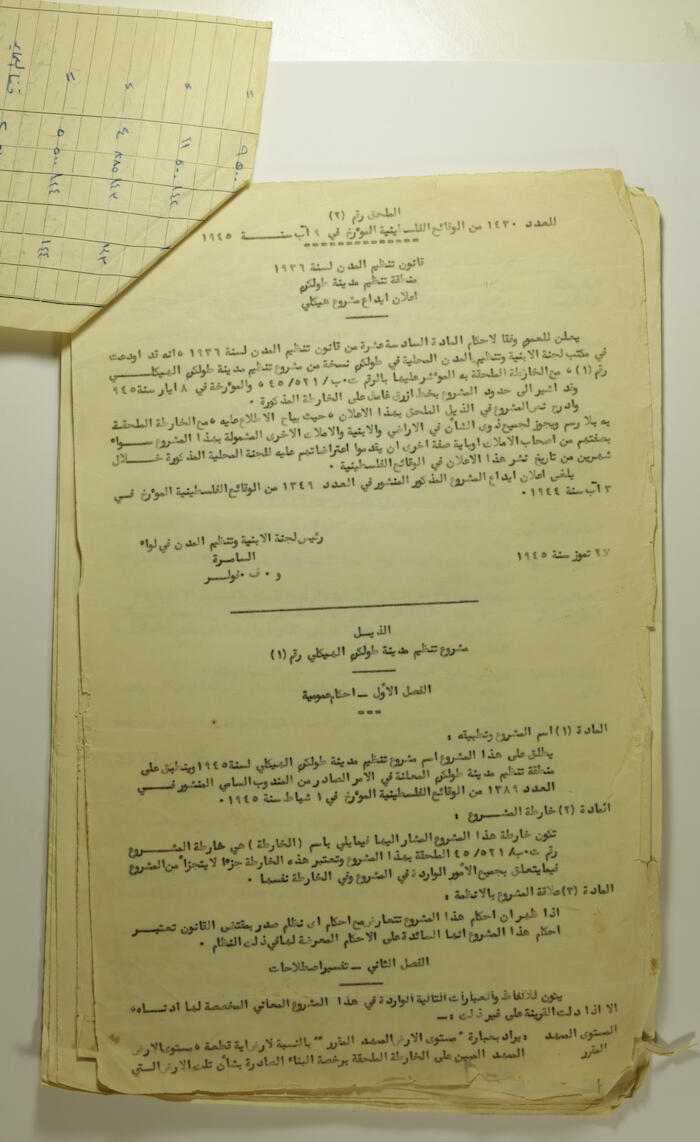 الملحق رقم (٢)
للعدد ١٤٣٠ من الوقائع الفلسطينية المؤرخ في ٩ آب سنة ١٩٤٥
قانون تنظيم المدن لسنة ١٩٣٦
منطقة تنظيم مدينة طولكرم
اعلان ايداع مشروع هيكلي
يعلن للعموم وفقا لاحكام المادة السادسة عشرة من قانون تنظيم المدن لسنة ١٩٣٦ ، انه قد اودعت
في مكتب لجنة الابنية وتنظيم المدن المحلية في طولكرم نسخة من مشروع تنظيم مدينة طولكرم الهيكلي
رقم (١) ، مع الخارطة الملحقة به المؤشر عليها بالرقم ت٠ب/ ٥٢١/ ٤٥ ، والمؤرخة في ٨ ايار سنة ١٩٤٥
وقد اشير الى حدود المشروع بخط ازرق غامق على الخارطة المذكورة ٠
وادرج نص المشروع في الذيل الملحق بهذا الاعلان ، حيث يباح الاطلاع عليه ، مع الخارطة الملحقة
به بلا رسم ويجوز لجميع ذوى الشأن في الاراضي والابنية والاملاك الاخرى المشمولة بهذا المشروع سواء
بصفتهم من اصحاب الاملاك او باية صفة اخرى ان يقدموا اعتراضاتهم عليه للجنة المحلية المذكورة خلال
شهرين من تاريخ نشر هذا الاعلان في الوقائع الفلسطينية ٠
يلغى اعلان ايداع المشروع المذكور المنشور في العدد ١٣٤٩ من الوقائع الفلسطينية المؤرخ في
٣ آب سنة ١٩٤٤ ٠
رئيس لجنة الابنية وتنظيم المدن في لواء
٢٧ تموز سنة ١٩٤٥
السامرة
و ٠ ف ٠ فولر
الذيل
مشروع تنظيم مدينة طولكرم الهيكلي رقم (١)
الفصل الأول ــ احكام عمومية
المادة (١) اسم المشروع وتطبيقه :
يطلق على هذا المشروع اسم مشروع تنظيم مدينة طولكرم الهيكلي لسنة ١٩٤٥ وينطبق على
منطقة تنظيم مدينة طولكرم المعلنة في الامر الصادر من المندوب السامي المنشور في
العدد ١٣٨٩ من الوقائع الفلسطينية المؤرخ في ١ شباط سنة ١٩٤٥ ٠
المادة (٢) خارطة المشروع :
تكون خارطة هذا المشروع المشار اليها فيما يلي باسم (الخارطة) هي خارطة المشروع
رقم ت٠ب/ ٥٢١/ ٤٥ الملحقة بهذا المشروع وتعتبر هذه الخارطة جزءًا لا يتجزأ من المشروع
فيما يتعلق بجميع الأمور الواردة في المشروع وفي الخارطة نفسها ٠
المادة (٣) علاقة المشروع بالانظمة :
اذا ظهر ان احكام هذا المشروع تتعارض مع احكام اى نظام صدر بمقتضى القانون تعتبر
احكام هذا المشروع انها السائدة على الاحكام المعرضة لها في ذلك النظام ٠
الفصل الثاني ــ تفسير اصطلاحات
يكون للالفاظ والعبارات التالية الواردة في هذا المشروع المعاني المخصصة لها ادناه ،
الا اذا دلت القرينة على غير ذلك : ــ
المستوى الممهد : يراد بعبارة " مستوى الارض الممهد المقرر " بالنسبة لارض اية قطعة ، مستوى الارض
المقرر الممهد المبين على الخارطة الملحقة برخصة البناء الصادرة بشأن تلك الارض التي